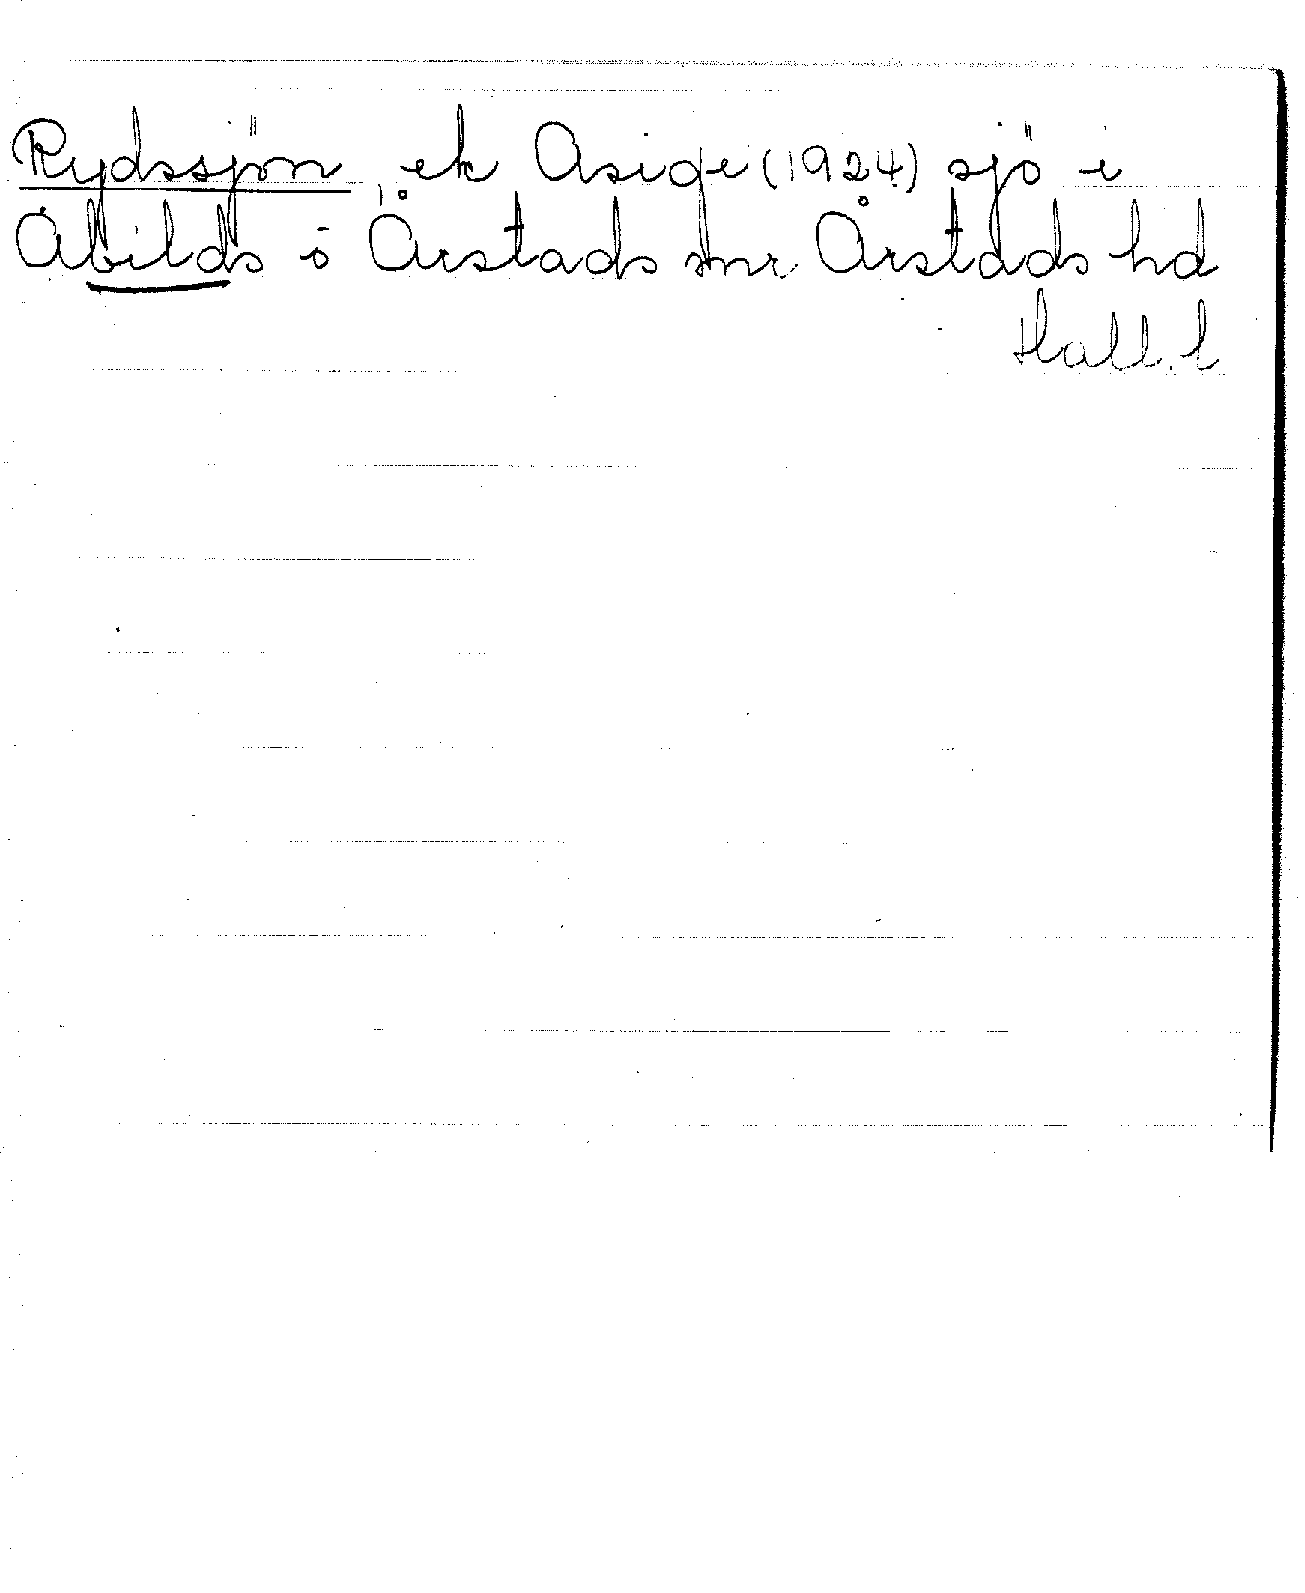 Rydssjön, ek Asige (1924) sjö i
Abilds o Årstads snr Årstads hd
Hall. l